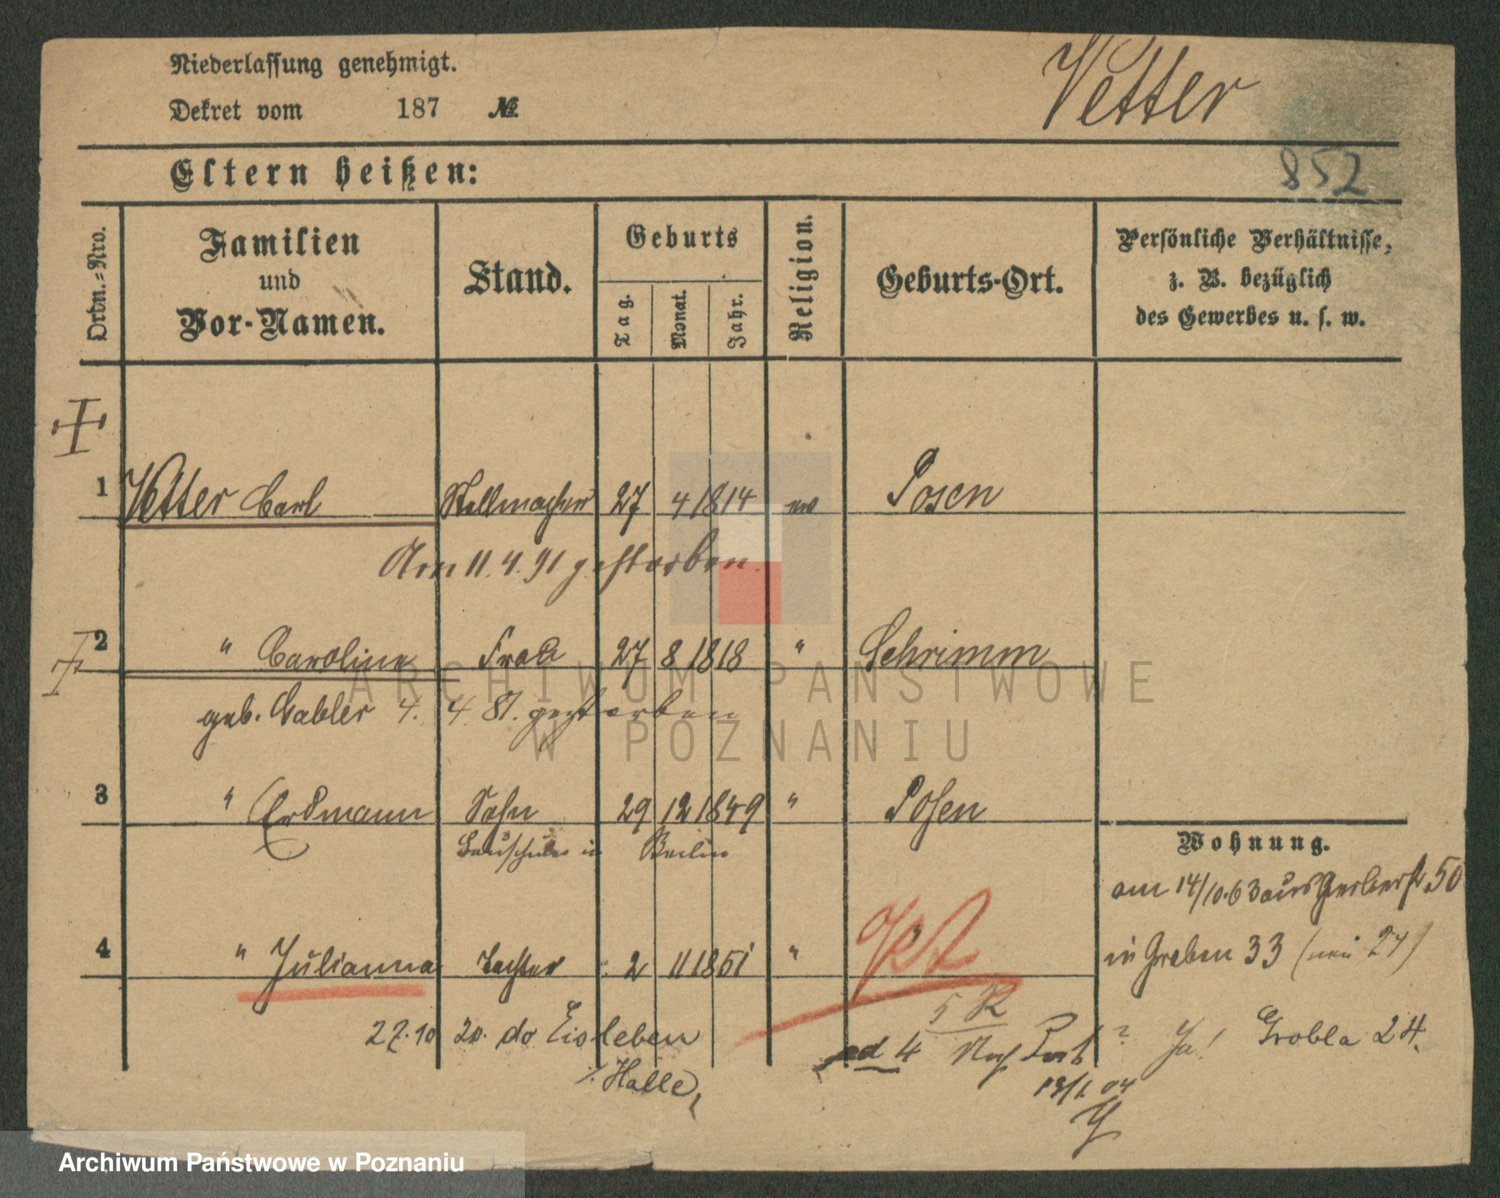 Niederlassung genehmigt.
Vetter
Dekret vom 187 №
Eltern heißen:
852
Ordn.-Nro.
Familien und Vor-Namen.
Stand.
Geburts
Tag.
Monat.
Jahr.
Religion.
Geburts-Ort.
Persönliche Verhältnisse, z. B. bezüglich des Gewerbes u. s. w.
1 Vetter Carl Stellmacher 27 4 1814 ev Posen
Am 11. 4. 91 gestorben.
2 " Caroline Frau 27 8 1818 " Schrimm
geb. Gabler 4. 4 81. gestorben
3 " Erdmann Sohn 29 12 1849 " Posen
Bauschüler in Berlin
Wohnung.
am 14/10.63 aus Gerberst 50
4 " Julianna Tochter 2 11 1851 "
in Graben 33 (neu 24)
27.10 20. do Eisleben
/. Halle,
ad 4 Noch Post ? Ja! Grobla 24.
ARCHIWUM PAŃSTWOWE
W POZNANIU
Archiwum Państwowe w Poznaniu